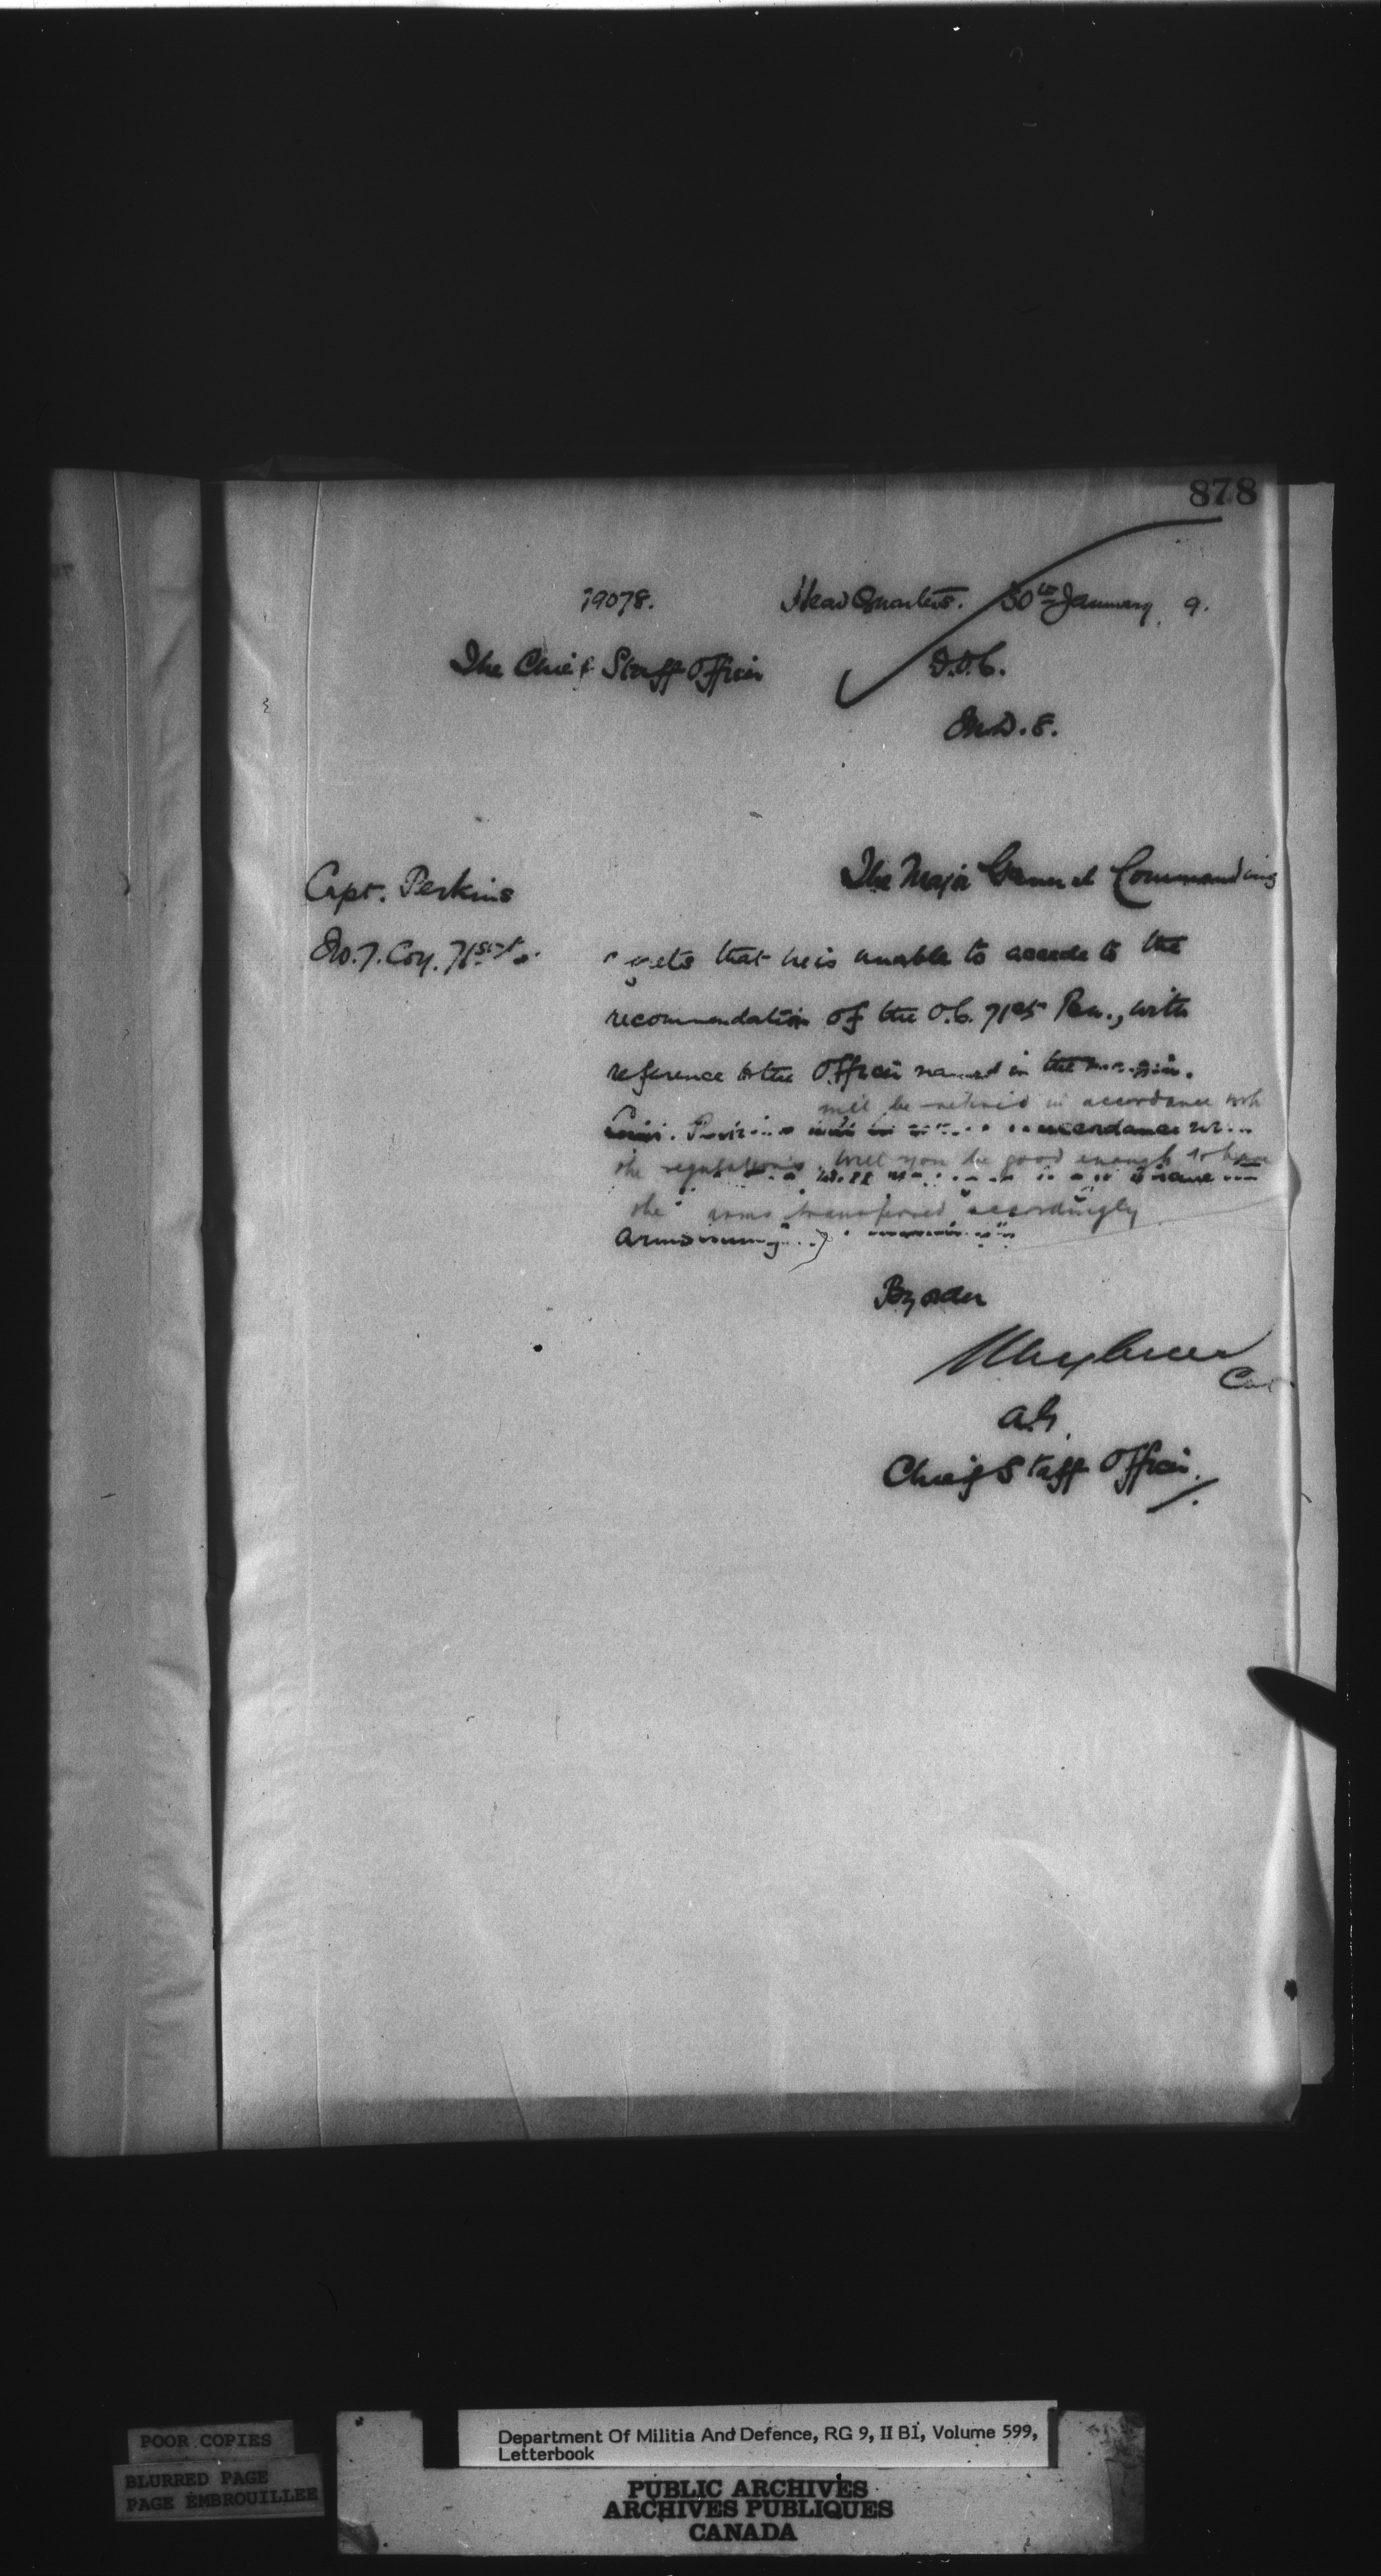 878
19078. Head Quarters. 30th January, 9.
The Chief Staff Officer
D.O.C.
M.D. 8.
Capt. Perkins
No. 7. Coy. 71st
The Major General Commanding
regrets that he is unable to accede to the
recommendation of the O.C. 71st Bn., with
reference to the Officer named in the margin.
will be retired in accordance with
accordance
the regulations. Will you be good enough to have
the arms transferred accordingly
By order
Col
A.G.
Chief Staff Officer.
POOR COPIES
BLURRED PAGE
PAGE EMBROUILLEE
Department Of Militia And Defence, RG 9, II B1, Volume 599,
Letterbook
PUBLIC ARCHIVES
ARCHIVES PUBLIQUES
CANADA